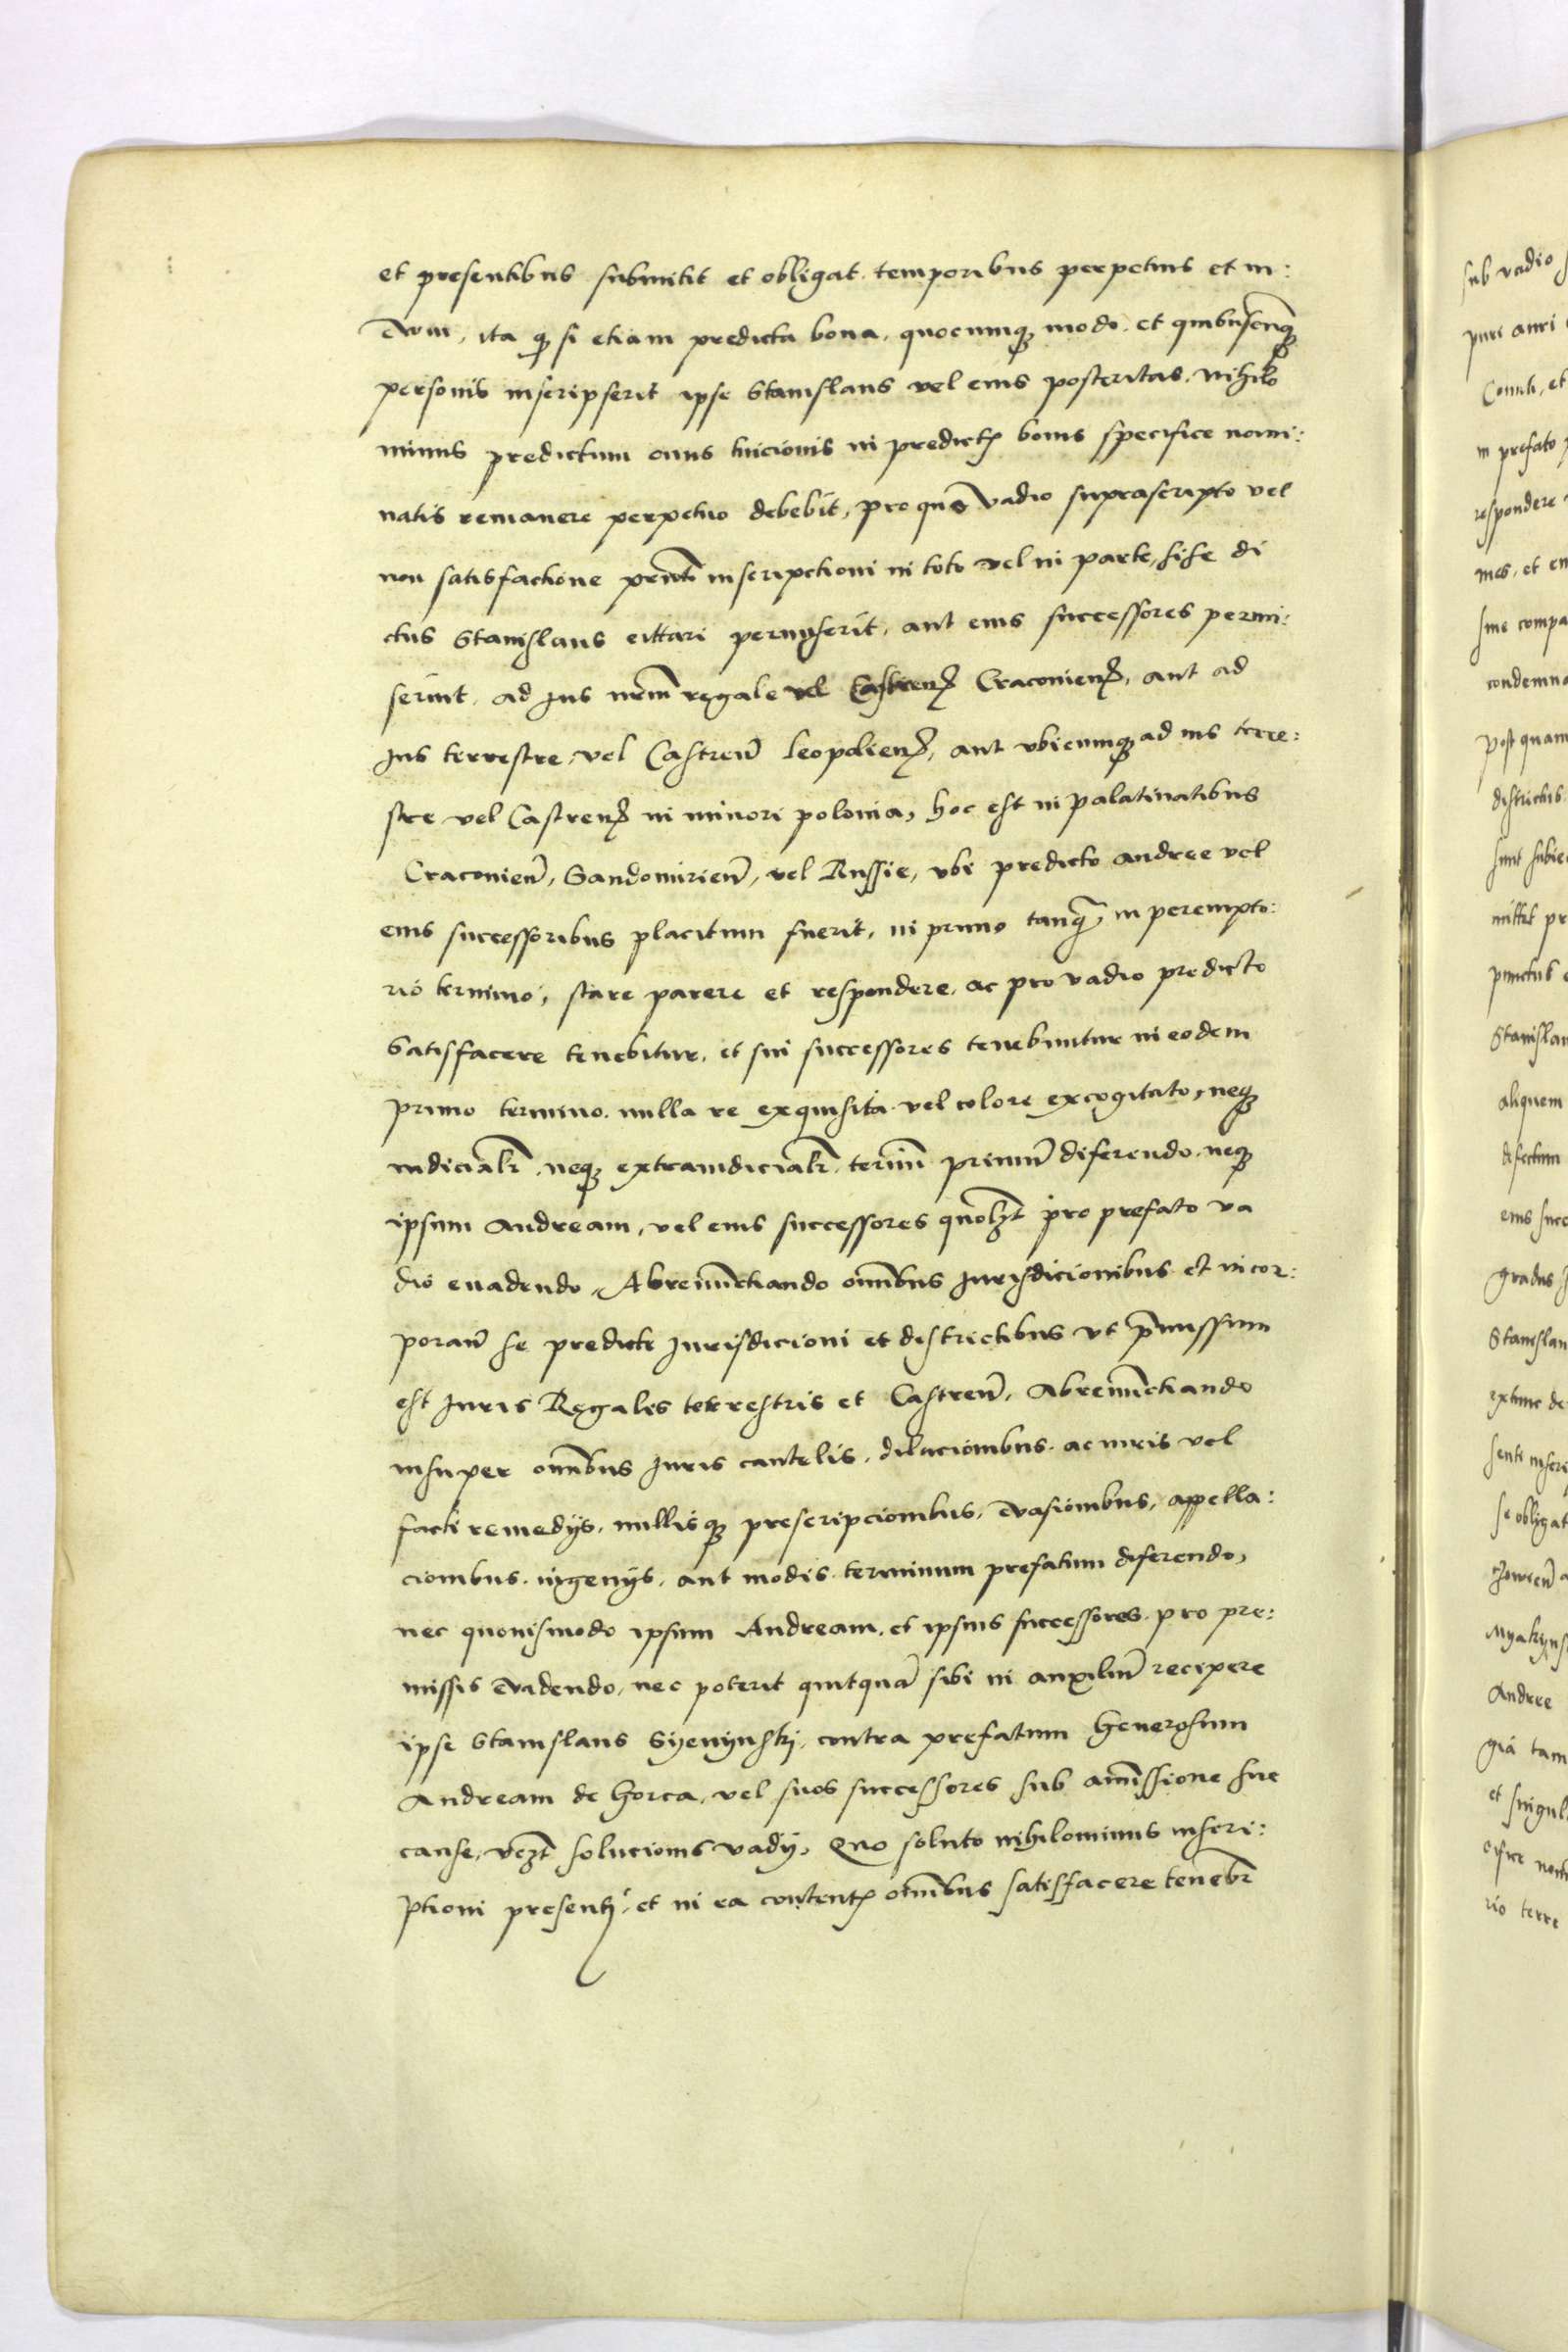 et presentibus submitit et obligat temporibus perpetuis et in:
ēvum, ita q3 si etiam predicta bona, quocumq3 modo et quibuscūq3
personis inscripserit ipse Stanislaus vel eius posteritas, nihilo
minus predictum onus tuicionis in predictis bonis specifice nomi:
natis remanere perpetuo debebit, pro quo vadio suprascripto vel
non satisfactione prn̄ti inscriptioni in toto vel in parte, si se di
ctus Stanislaus cittari permiserit, aut eius successores permi:
serint, ad Jus nrm̄ regale vel Castren̄ Cracovien̄, aut ad
Jus terrestre, vel Castren̄ leopolien̄, aut ubicumq3 ad ius terre:
stre vel Castren̄ in minori polonia, hoc est in palatinatibus
Cracovien̄, Sandomirien̄, vel Russie, ubi predicto andree vel
eius successoribus placitum fuerit, in primo tanq̄, in perempto:
rio termino, stare parere et respondere, ac pro vadio predicto
Satisfacere tenebitur, et sui successores tenebuntur in eodem
primo termino, nulla re exquisita vel colore excogitato, neq3
iudicialr̄, neq3 extraiudicialr̄, termin̄ primū diferendo, neq3
ipsum Andream, vel eius successores quolz̄t pro prefato va
dio euadendo, Abrenūctiando om̄ibus Jurisdicionibus et incor:
poran̄ se predicte Jurisdicioni et districtibus ut p̄missum
est Juris Regalis terrestris et Castren̄, Abrenūctiando
insuper om̄ibus Juris cautelis, dilacionibus, ac iuris vel
facti remedijs, nullisq3 prescripcionibus, ēvasionibus, appella:
cionibus, ingenijs, aut modis, terminum prefatum diferendo,
nec quovismodo ipsum Andream, et ipsius successores pro pre:
missis ēvadendo, nec poterit quitquā sibi in auxiliū recipere
ipse Stanislaus Syenynskj, contra prefatum Generosum
Andream de Gorca, vel suos successores sub amissione sue
cause, vcz̄t solucionis vadij, Quo soluto nihilominus inscri:
ptioni presenti, et in ea contentis om̄ibus satisfacere tenebr̄
sub vadio
puri auri
Comiti, et
in prefato
respondere
mes, et
sine
condemna
post quam
districtus
sunt
mittit
Stanislau
aliquem
defectum
eius succ
gradus
Stanislau
extunc de
senti inscri
se obligat
Andree
gia tam
et singul
rio terre